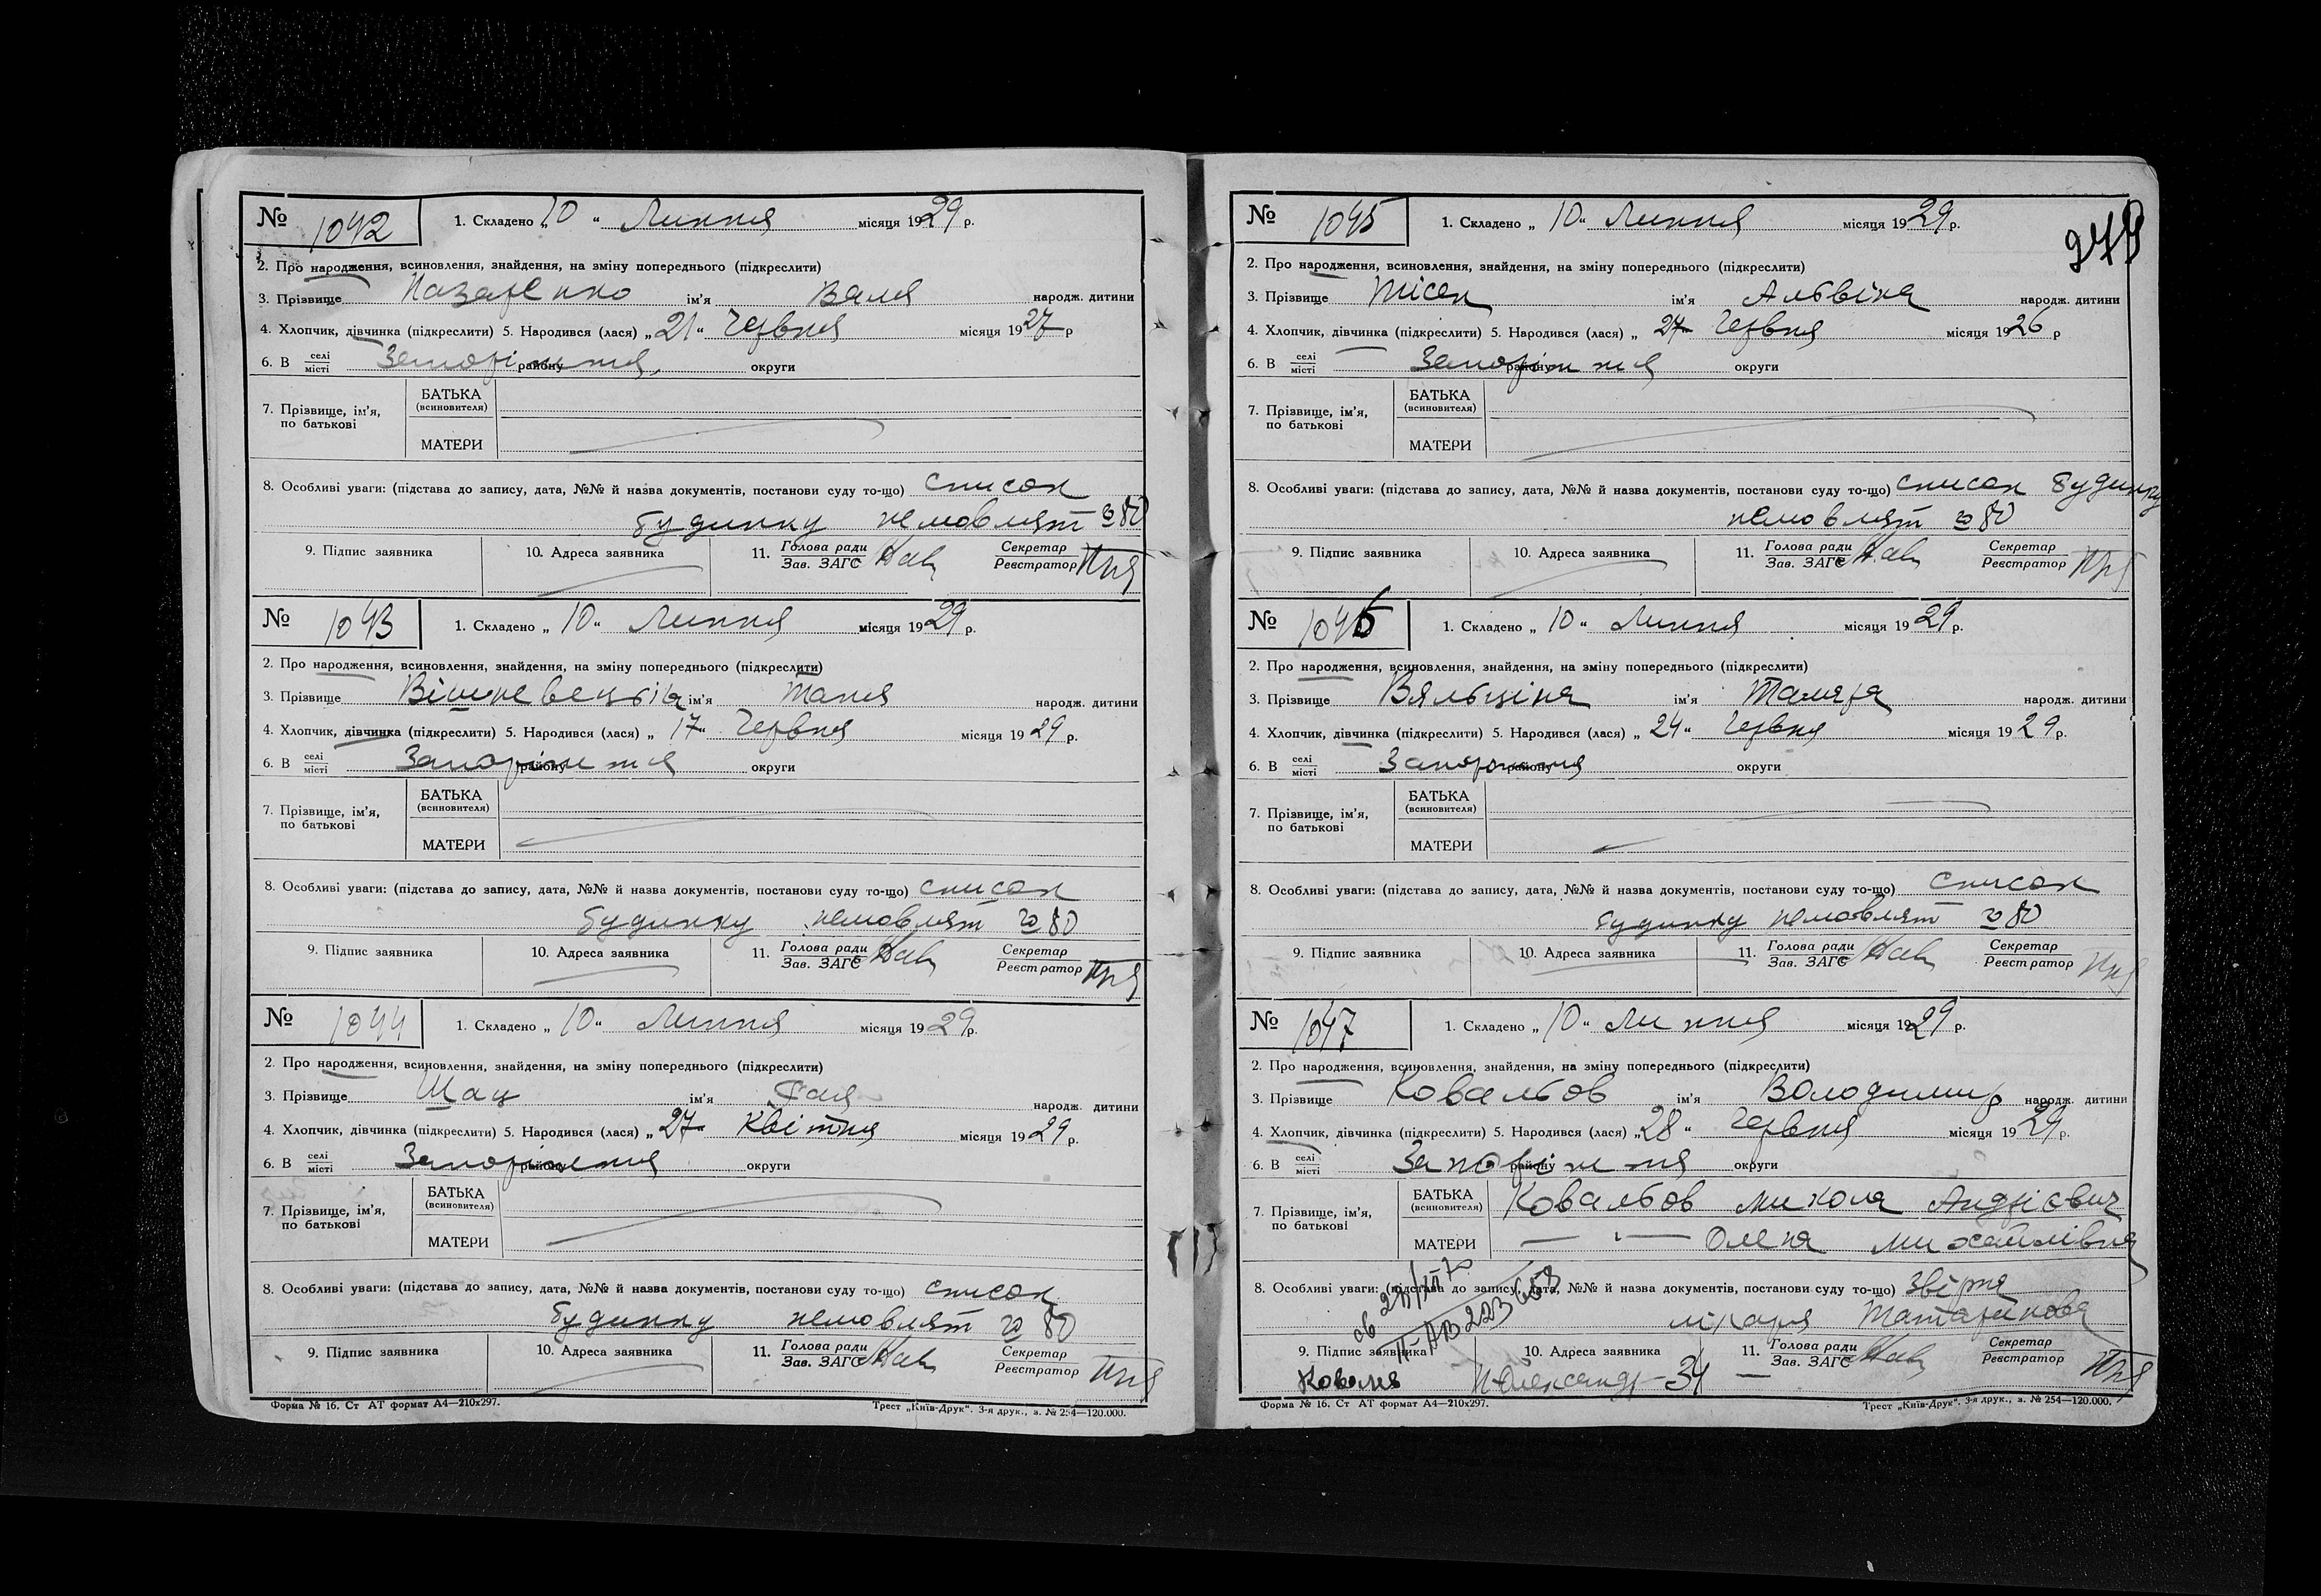 № 1042 1. Складено „10“ Липня місяця 1929 р.
2. Про народження, всиновлення, знайдення, на зміну попереднього (підкреслити)
3. Прізвище Назаренко ім'я Валя народж. дитини
4. Хлопчик, дівчинка (підкреслити) 5. Народився (лася) „21“ Червня місяця 1927 р
6. В селі місті Запоріжжя району округи
7. Прізвище, ім'я, по батькові
БАТЬКА (всиновителя)
МАТЕРИ
8. Особливі уваги: (підстава до запису, дата, №№ й назва документів, постанови суду то-що) список
будинку немовлят № 80
9. Підпис заявника 10. Адреса заявника 11. Голова ради Зав. ЗАГС Секретар Реєстратор
№ 1043 1. Складено „10“ Липня місяця 1929 р.
2. Про народження, всиновлення, знайдення, на зміну попереднього (підкреслити)
3. Прізвище ім'я Таня народж. дитини
4. Хлопчик, дівчинка (підкреслити) 5. Народився (лася) „17“ Червня місяця 1929 р.
6. В селі місті Запоріжжя району округи
7. Прізвище, ім'я, по батькові
БАТЬКА (всиновителя)
МАТЕРИ
8. Особливі уваги: (підстава до запису, дата, №№ й назва документів, постанови суду то-що) список
будинку немовлят № 80
9. Підпис заявника 10. Адреса заявника 11. Голова ради Зав. ЗАГС Секретар Реєстратор
№ 1044 1. Складено „10“ Липня місяця 1929 р.
2. Про народження, всиновлення, знайдення, на зміну попереднього (підкреслити)
3. Прізвище Шац ім'я народж. дитини
4. Хлопчик, дівчинка (підкреслити) 5. Народився (лася) „27“ Квітня місяця 1929 р.
6. В селі місті Запоріжжя району округи
7. Прізвище, ім'я, по батькові
БАТЬКА (всиновителя)
МАТЕРИ
8. Особливі уваги: (підстава до запису, дата, №№ й назва документів, постанови суду то-що) список
будинку немовлят № 80
9. Підпис заявника 10. Адреса заявника 11. Голова ради Зав. ЗАГС Секретар Реєстратор
Форма № 16. Ст АТ формат А4—210х297. Трест „Київ-Друк“. 3-я друк., з. № 254—120.000.
№ 1045 1. Складено „10“ Липня місяця 1929 р.
2. Про народження, всиновлення, знайдення, на зміну попереднього (підкреслити)
3. Прізвище ім'я Альвіна народж. дитини
4. Хлопчик, дівчинка (підкреслити) 5. Народився (лася) „27“ Червня місяця 1926 р
6. В селі місті Запоріжжя району округи
7. Прізвище, ім'я, по батькові
БАТЬКА (всиновителя)
МАТЕРИ
8. Особливі уваги: (підстава до запису, дата, №№ й назва документів, постанови суду то-що) список будинку
немовлят № 80
9. Підпис заявника 10. Адреса заявника 11. Голова ради Зав. ЗАГС Секретар Реєстратор
№ 1046 1. Складено „10“ Липня місяця 1929 р.
2. Про народження, всиновлення, знайдення, на зміну попереднього (підкреслити)
3. Прізвище Вяльціна ім'я Тамара народж. дитини
4. Хлопчик, дівчинка (підкреслити) 5. Народився (лася) „24“ Червня місяця 1929 р.
6. В селі місті Запоріжжя району округи
7. Прізвище, ім'я, по батькові
БАТЬКА (всиновителя)
МАТЕРИ
8. Особливі уваги: (підстава до запису, дата, №№ й назва документів, постанови суду то-що) список
будинку немовлят № 80
9. Підпис заявника 10. Адреса заявника 11. Голова ради Зав. ЗАГС Секретар Реєстратор
№ 1047 1. Складено „10“ Липня місяця 1929 р.
2. Про народження, всиновлення, знайдення, на зміну попереднього (підкреслити)
3. Прізвище Ковальов ім'я Володимир народж. дитини
4. Хлопчик, дівчинка (підкреслити) 5. Народився (лася) „28“ Червня місяця 1929 р.
6. В селі місті Запоріжжя району округи
7. Прізвище, ім'я, по батькові
БАТЬКА (всиновителя) Ковальов Микола Андрієвич
МАТЕРИ — " — Олена Михайлівна
8. Особливі уваги: (підстава до запису, дата, №№ й назва документів, постанови суду то-що)
лікаря
9. Підпис заявника 10. Адреса заявника 11. Голова ради Зав. ЗАГС Секретар Реєстратор
34 —
Форма № 16. Ст АТ формат А4—210х297. Трест „Київ-Друк“. 3-я друк., з. № 254—120.000.